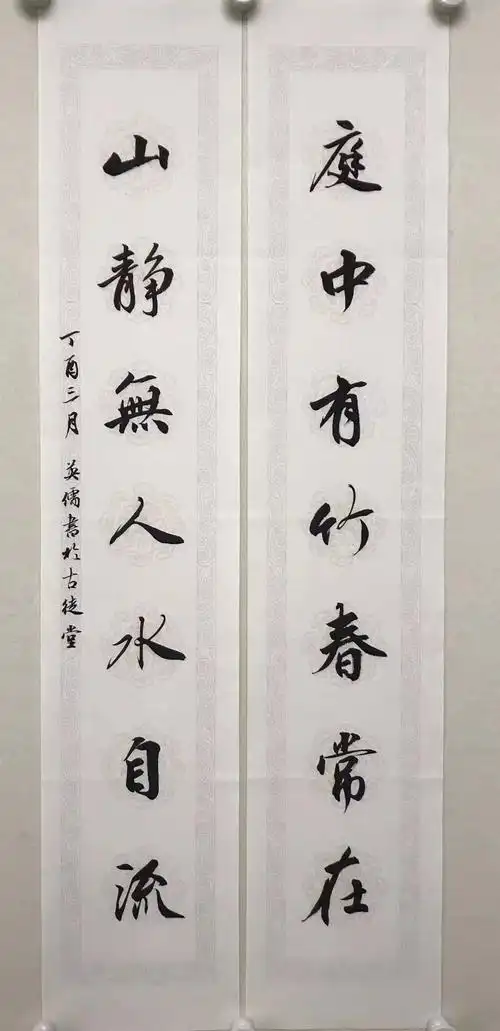 庭中有竹春常在
山静無人水自流
丁酉三月英儒書於古徒堂